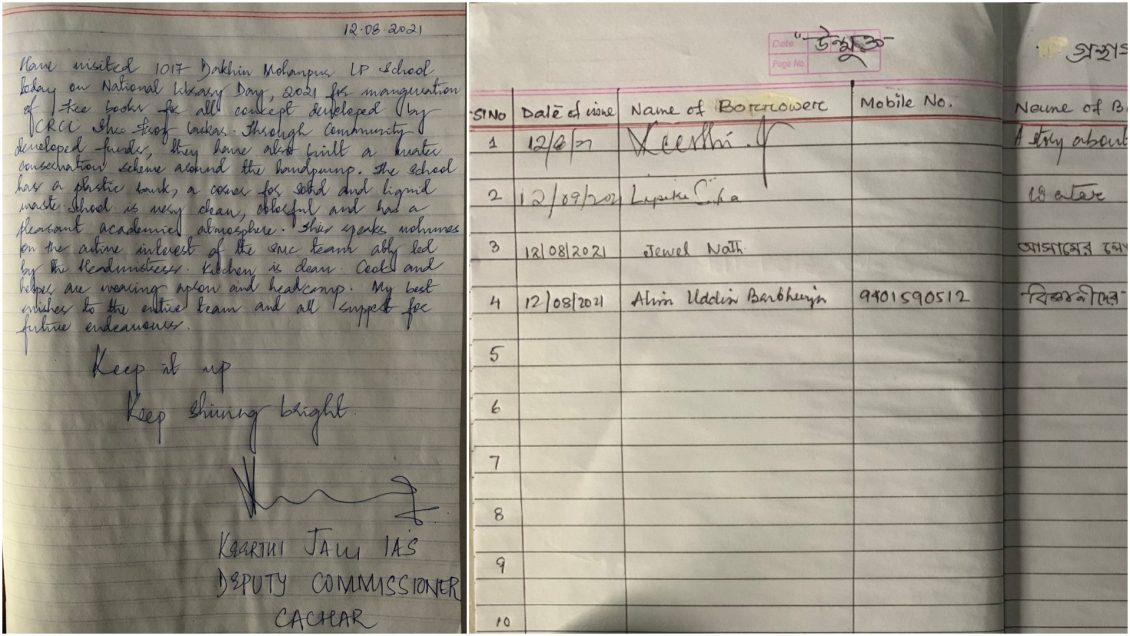 12.08.2021
Have visited 1017 Dakhin Mohanpur LP School
today on National Library Day, 2021 for inauguration
of free books for all concept developed by
CRCC Shee Through community
developed funds, they have also built a water
conservation scheme around the handpump. The school
has a plastic bank, a corner for solid and liquid
waste. School is very clean, colorful and has a
pleasant academic atmosphere. This speaks volumes
on the active interest of the SMC team ably led
by the Headmistress. Kitchen is clean. Cook and
helper are wearing apron and headcamp. My best
wishes to the entire team and all support for
future endeavours.
Keep it up
Keep shining bright.
KEERTHI JALLI IAS
DEPUTY COMMISSIONER
CACHAR
"উন্মুক্ত"
Date
Page No.
Sl No Date of issue Name of Borrower Mobile No.
1 Keerthi. J
2 Lipika
3 12/08/2021 Jewel Nath
4 12/08/2021 Alim Uddin Barbhuiya 9401590512
5
6
7
8
9
10
গ্রন্থা
Name of B
A story about
Water
আসামের